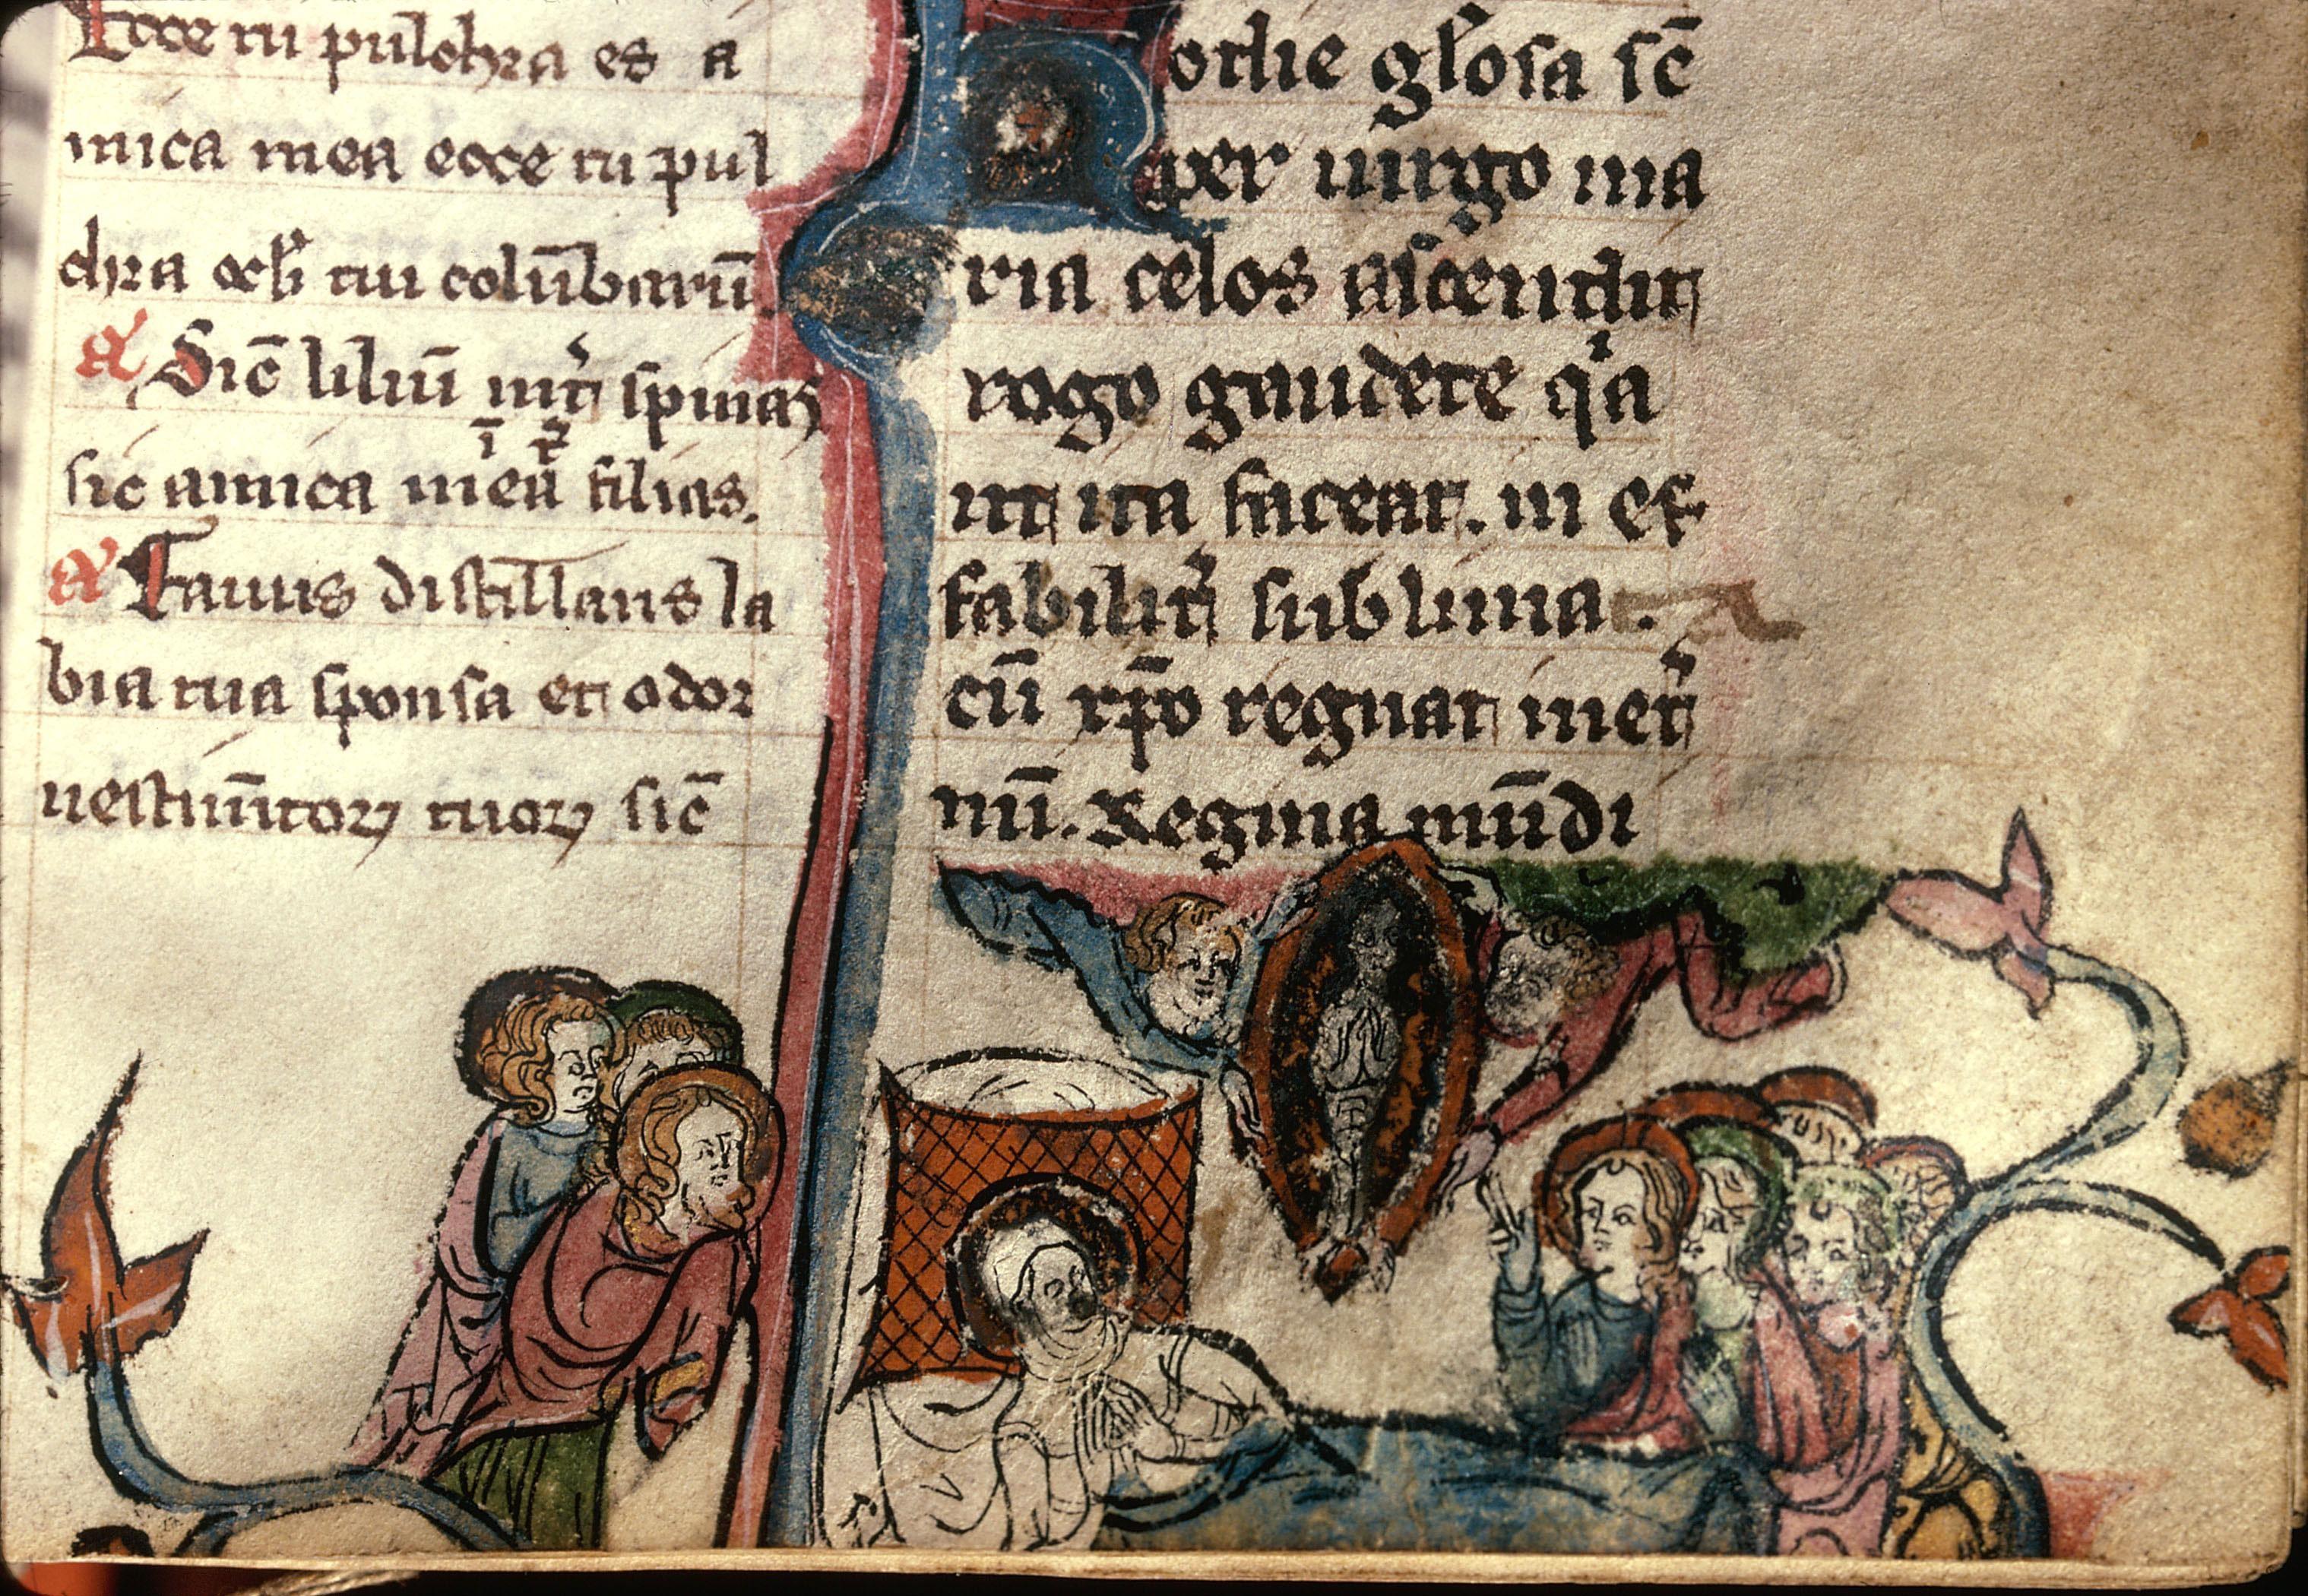 Ecce tu pulchra es a
mica mea ecce tu pul
chra ocl'i tui colūbarū.
a Sic̄ liliū int' spinas
sic amica mea ī t̄ filias.
a Fauus distillans la
bia tua sponsa et odor
uestimn̄torꝝ tuorꝝ sic̄
odie gl'osa sē
per uirgo ma
ria celos ascendit
rogo gaudete qia
it ita faceat. in ef
fabilit' sublima.
cū xp̄o regnat inet'
nū. Regina mūdi